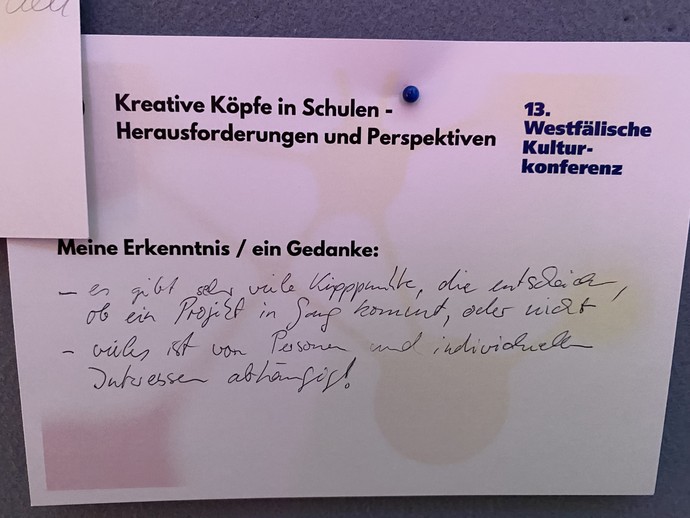 Kreative Köpfe in Schulen -
Herausforderungen und Perspektiven
13.
Westfälische
Kultur-
konferenz
Meine Erkenntnis / ein Gedanke:
- es gibt sehr viele Kipppunkte, die entscheiden,
ob ein Projekt in Gang kommt, oder nicht
- vieles ist von Personen und individuellen
Interessen abhängig!